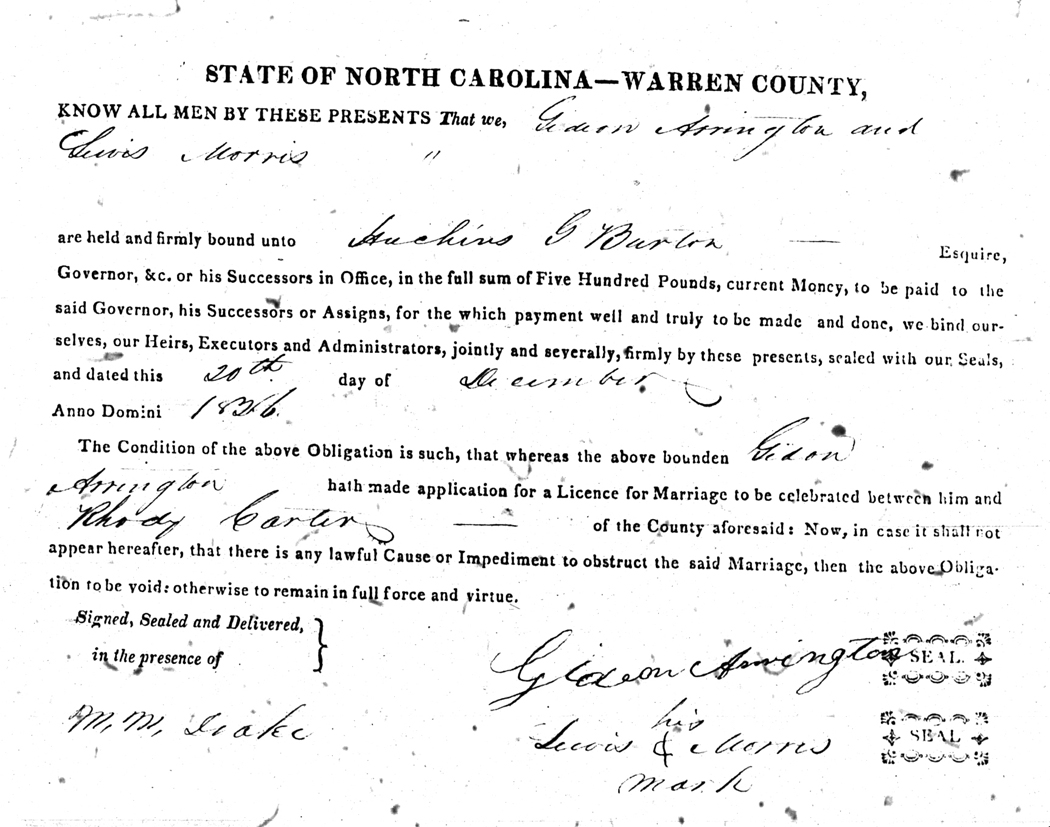 STATE OF NORTH CAROLINA—WARREN COUNTY,
KNOW ALL MEN BY THESE PRESENTS That we, Gideon Arrington and
Lewis Morris "
are held and firmly bound unto Huchins G Burton — Esquire,
Governor, &c. or his Successors in Office, in the full sum of Five Hundred Pounds, current Money, to be paid to the
said Governor, his Successors or Assigns, for the which payment well and truly to be made and done, we bind our-
selves, our Heirs, Executors and Administrators, jointly and severally, firmly by these presents, sealed with our Seals,
and dated this 20th day of December
Anno Domini
The Condition of the above Obligation is such, that whereas the above bounden Gideon
Arrington hath made application for a Licence for Marriage to be celebrated between him and
Rhody Carter — of the County aforesaid: Now, in case it shall not
appear hereafter, that there is any lawful Cause or Impediment to obstruct the said Marriage, then the above Obliga-
tion to be void: otherwise to remain in full force and virtue.
Signed, Sealed and Delivered,
in the presence of
Gideon Arrington SEAL.
M. M. Drake
his
Lewis & Morris SEAL
mark